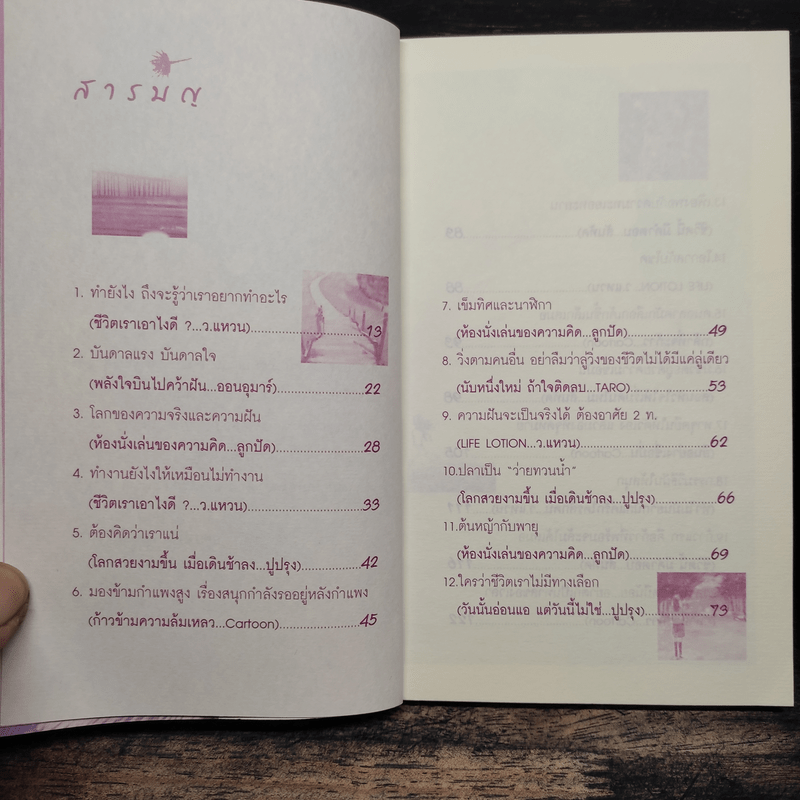 สารบัญ
1. ทำยังไง ถึงจะรู้ว่าเราอยากทำอะไร
(ชีวิตเราเอาไงดี ?...ว.แหวน)...............................13
2. บันดาลแรง บันดาลใจ
(พลังใจบินไปคว้าฝัน...ออนอุมาร์)......................22
3. โลกของความจริงและความฝัน
(ห้องนั่งเล่นของความคิด...ลูกปัด)......................28
4. ทำงานยังไงให้เหมือนไม่ทำงาน
(ชีวิตเราเอาไงดี ?...ว.แหวน)...............................33
5. ต้องคิดว่าเราแน่
(โลกสวยงามขึ้น เมื่อเดินช้าลง...ปูปรุง)...............42
6. มองข้ามกำแพงสูง เรื่องสนุกกำลังรออยู่หลังกำแพง
(ก้าวข้ามความล้มเหลว...Cartoon).....................45
7. เข็มทิศและนาฬิกา
(ห้องนั่งเล่นของความคิด...ลูกปัด)......................49
8. วิ่งตามคนอื่น อย่าลืมว่าลู่วิ่งของชีวิตไม่ได้มีแค่ลู่เดียว
(นับหนึ่งใหม่ ถ้าใจติดลบ...TARO)......................53
9. ความฝันจะเป็นจริงได้ ต้องอาศัย 2 ท.
(LIFE LOTION...ว.แหวน)....................................62
10.ปลาเป็น "ว่ายทวนน้ำ"
(โลกสวยงามขึ้น เมื่อเดินช้าลง...ปูปรุง)...............66
11.ต้นหญ้ากับพายุ
(ห้องนั่งเล่นของความคิด...ลูกปัด)......................69
12.ใครว่าชีวิตเราไม่มีทางเลือก
(วันนั้นอ่อนแอ แต่วันนี้ไม่ใช่...ปูปรุง)..................73